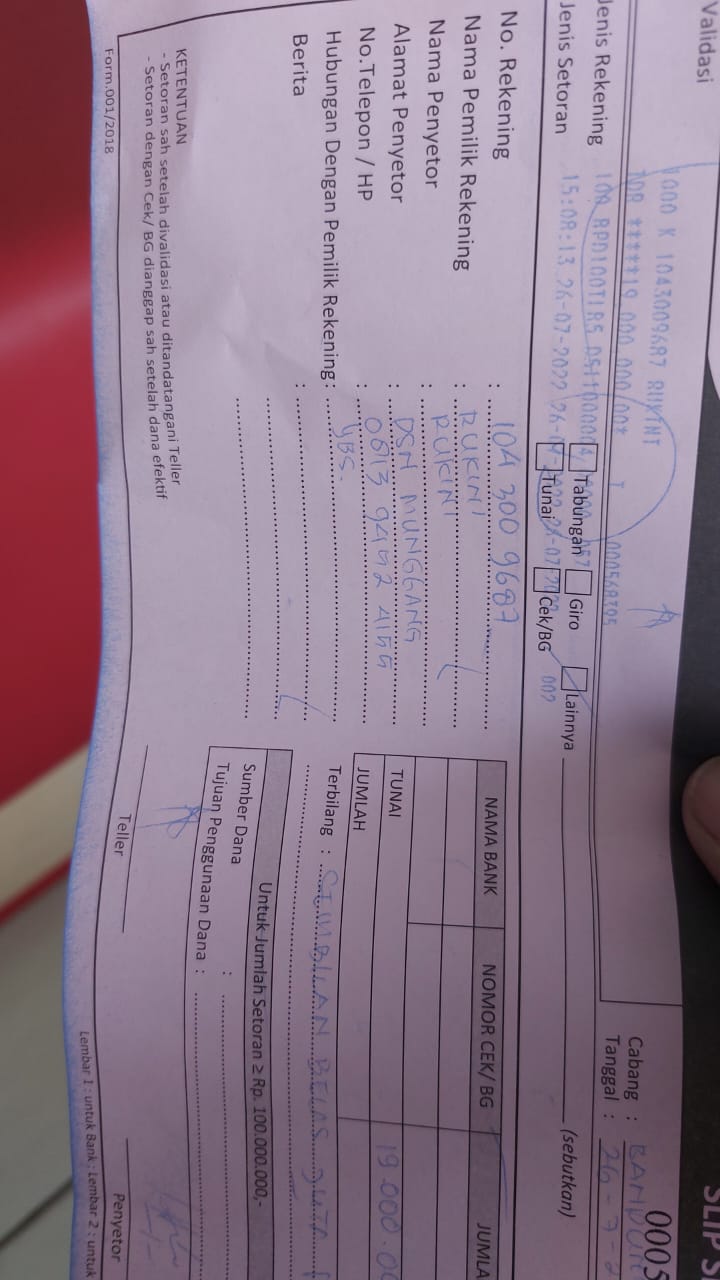 Validasi
SLIP S
0005
1000 K 1043009687 RUKINI
IDR ******19,000,000.00*
Jenis Rekening
Tabungan
Giro
Lainnya
(sebutkan)
Jenis Setoran
15:08:13 26-07-2022
Tunai
Cek/BG
007
Cabang :
Tanggal : 26-7-2
No. Rekening : 104 300 9687
Nama Pemilik Rekening : RUKINI
Nama Penyetor : RUKINI
Alamat Penyetor : DSN MUNGGANG
No.Telepon / HP : 0813 9492 4155
Hubungan Dengan Pemilik Rekening : YBS.
Berita :
NAMA BANK
NOMOR CEK/ BG
JUMLA
TUNAI
19.000.00
JUMLAH
Terbilang : SEMBILAN BELAS JUTA
Untuk Jumlah Setoran ≥ Rp. 100.000.000,-
Sumber Dana :
Tujuan Penggunaan Dana :
KETENTUAN
- Setoran sah setelah divalidasi atau ditandatangani Teller
- Setoran dengan Cek/ BG dianggap sah setelah dana efektif
Teller
Penyetor
Form.001/2018
Lembar 1 : untuk Bank ; Lembar 2 : untuk